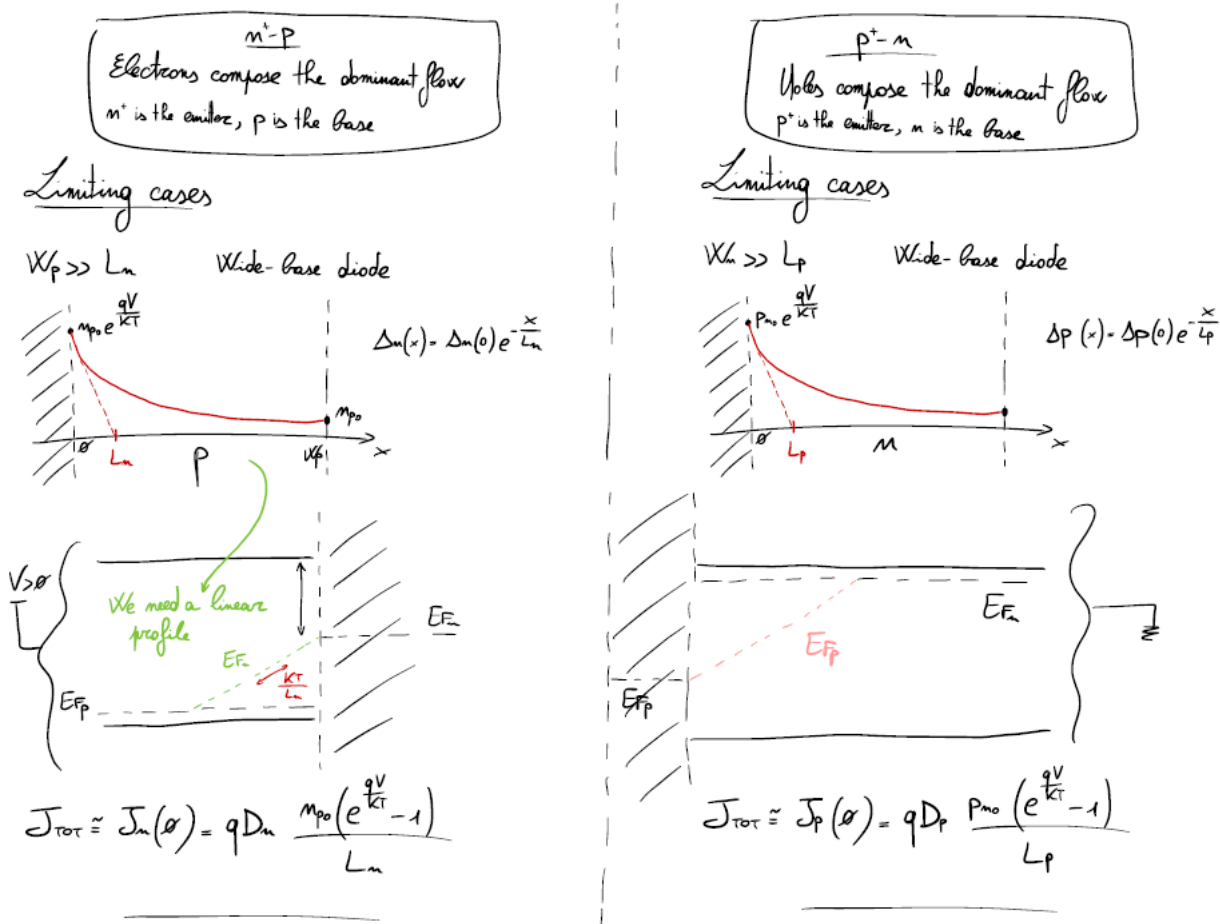 n⁺-p
Electrons compose the dominant flow
n⁺ is the emitter, p is the base
Limiting cases
Wp >> Ln Wide-base diode
np0 e^(qV/KT)
Δn(x) = Δn(0) e^(-x/Ln)
np0
0 Ln p Wp x
V>0
We need a linear
profile
EFn
EFn
KT/Ln
EFp
JTOT ≅ Jn(0) = qDn np0 (e^(qV/KT) - 1) / Ln
p⁺-n
Holes compose the dominant flow
p⁺ is the emitter, n is the base
Limiting cases
Wn >> Lp Wide-base diode
pn0 e^(qV/KT)
Δp(x) = Δp(0) e^(-x/Lp)
0 Lp n x
EFn
EFp
EFp
JTOT ≅ Jp(0) = qDp pn0 (e^(qV/KT) - 1) / Lp